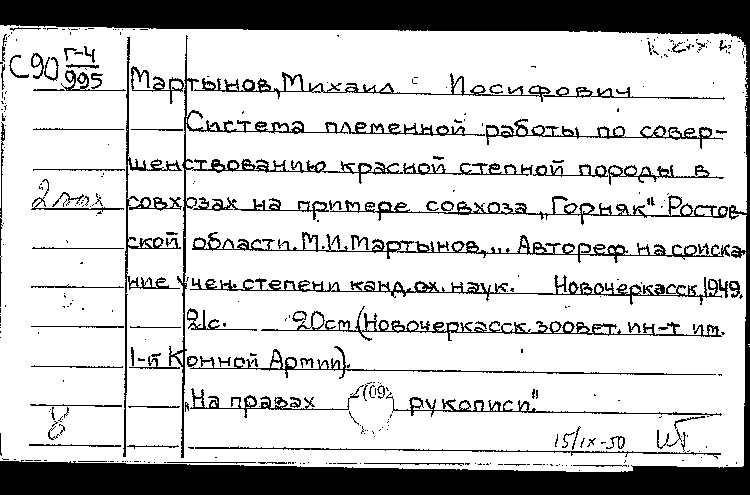 С90 Г-4
995
Мартынов, Михаил Иосифович
Система племенной работы по совер-
шенствованию красной степной породы в
совхозах на примере совхоза „Горняк" Ростов-
ской области. М.И.Мартынов,... Автореф. на соиска-
ние учен. степени канд.сх. наук. Новочеркасск, 1949.
21с. 20см (Новочеркасск. зоовет. ин-т им.
1-й Конной Армии).
„На правах (09) рукописи."
8
15/IX-50